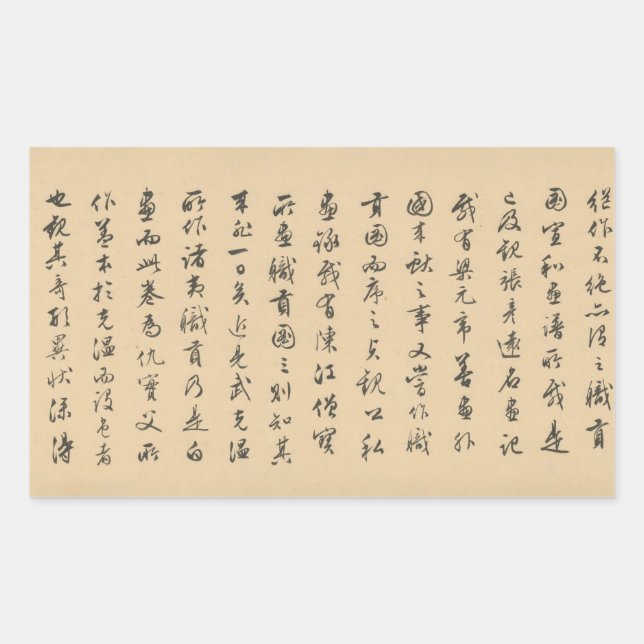 繼作不絕亦謂之職貢
圖宣和畫譜所載是
已及觀張彥遠名畫記
載有梁元帝善畫外
國来獻之事又嘗作職
貢圖而序之貞觀公私
畫錄載有陳江僧寶
所畫職貢圖三則知其
来非一日矣近見武克温
所作諸夷職貢乃是白
畫而此卷為仇實父所
作蓋本於克温而設色者
也觀其奇形異狀深得